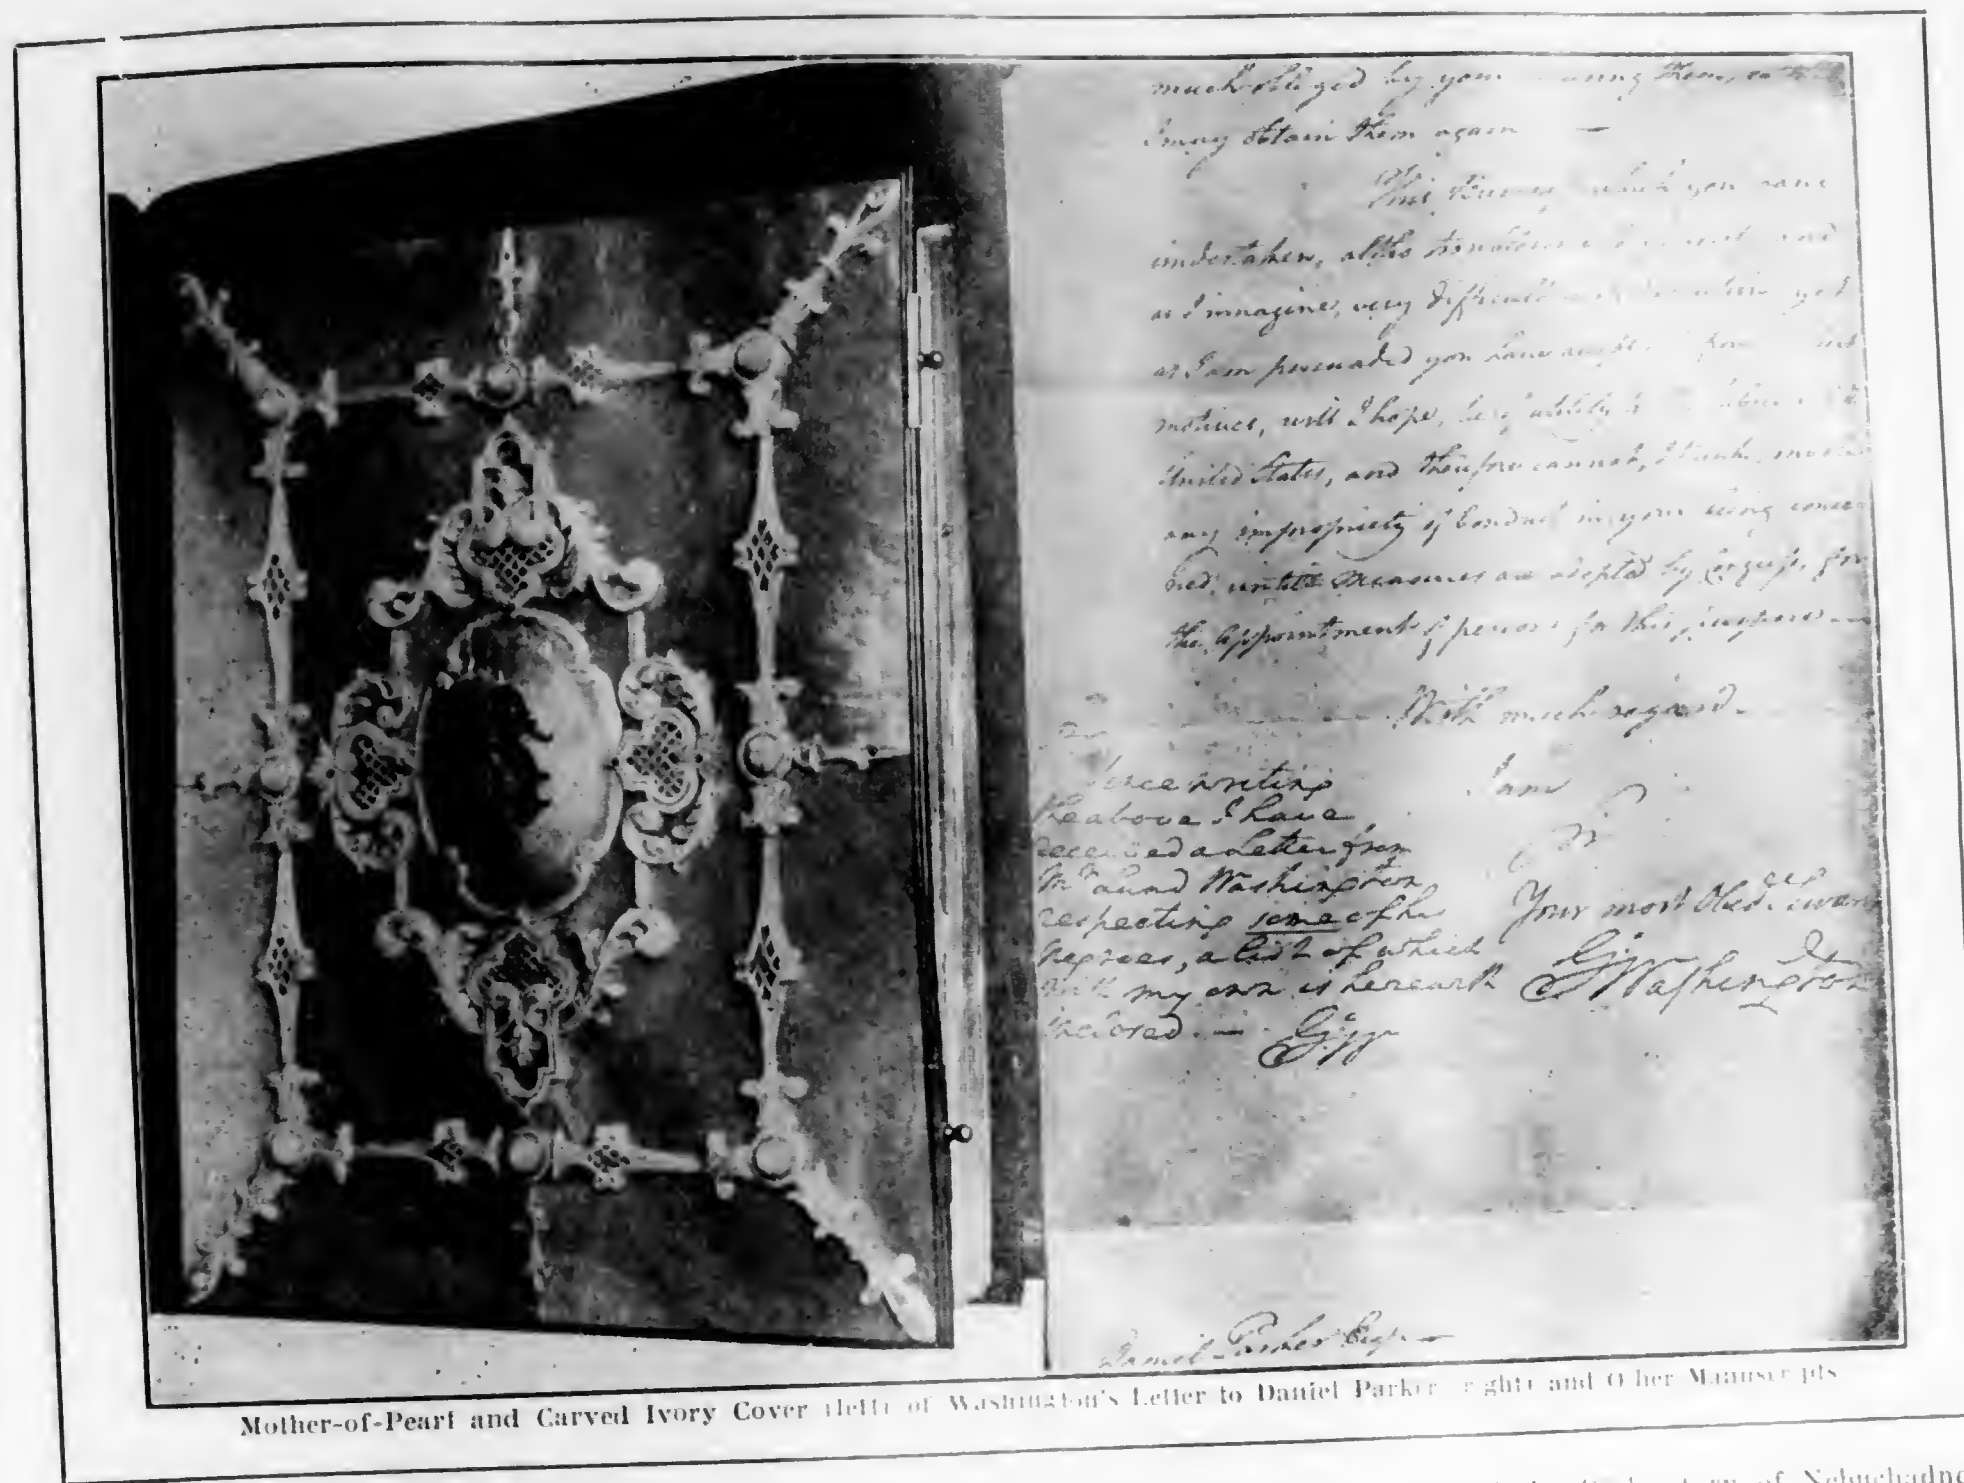 much obliged by your them, so that
I may obtain them again —
This business which you have
undertaken, altho' troublesome and
as I immagine, very difficult yet
as I am persuaded you have from
motives, will I hope, be of utility to the
United States, and therefore cannot, I think,
any impropriety of Conduct in your being concer
ned, untill measures are adopted by Congress, for
the appointment of persons for this purpose
With much regard
I am
Sir
Your most Obed. Servant
G:Washington
Since writing
the above I have
received a Letter from
Mr Lund Washington
respecting some of his
negroes, a list of which
with my own is herewith
inclosed. — G:W
Daniel Parker Esqr. —
Mother-of-Pearl and Carved Ivory Cover (left) of Washington's Letter to Daniel Parker (right) and Other Manuscripts
of Nebuchadne